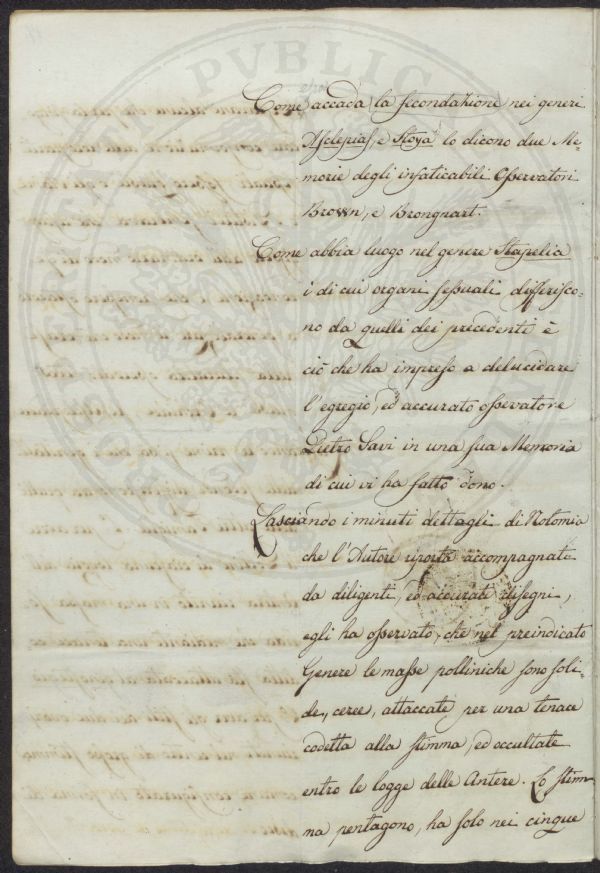 Come accada la fecondazione nei generi
Asclepias, e Hoya lo dicono due Me-
morie degli infaticabili Osservatori
Brown, e Brongnart.
Come abbia luogo nel genere Stapelia
i di cui organi sessuali differisco-
no da quelli dei precedenti è
ciò che ha impreso a delucidare
l'egregio, ed accurato osservatore
Pietro Savi in una sua Memoria
di cui vi ha fatto dono.
Lasciando i minuti dettagli di Notomia
che l'Autore riporta accompagnati
da diligenti, ed accurati disegni,
egli ha osservato, che nel preindicato
Genere le masse polliniche sono soli-
de, ceree, attaccate per una tenace
codetta alla stimma, ed occultate
entro le logge delle Antere. Lo stim-
ma pentagono, ha solo nei cinque